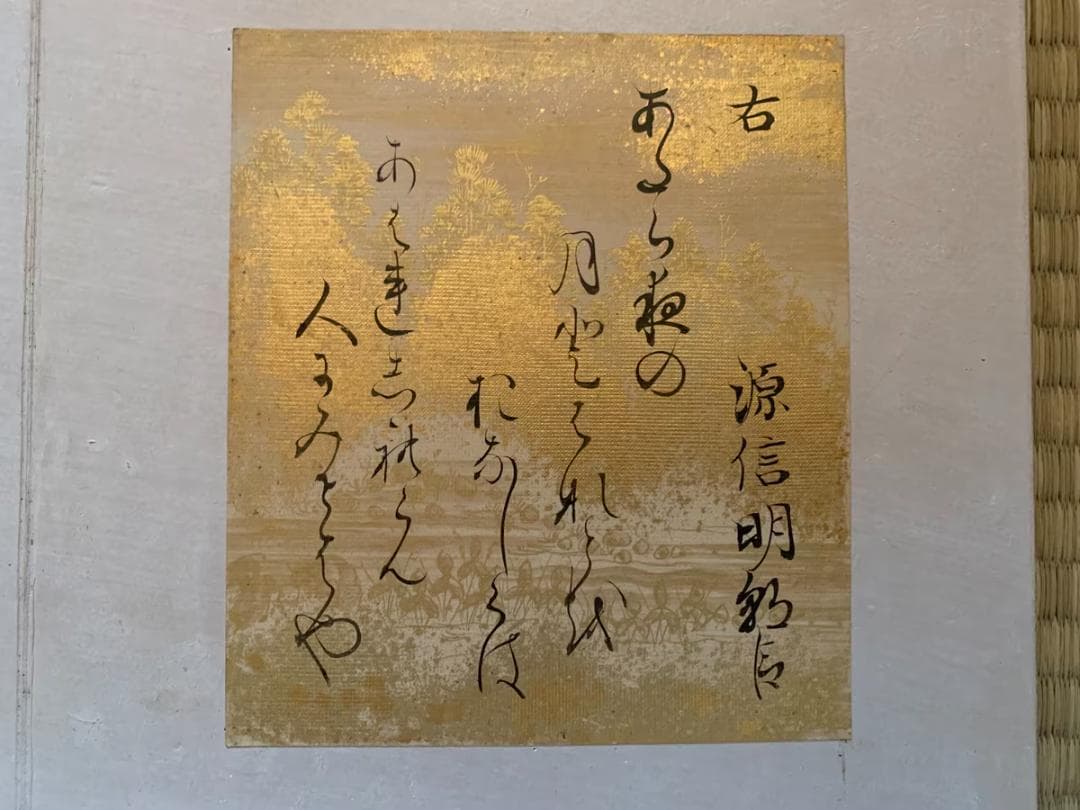 右　源信明朝臣
あたら夜の
月とはなとを
おなしくは
あはれしれらん
人にみせはや